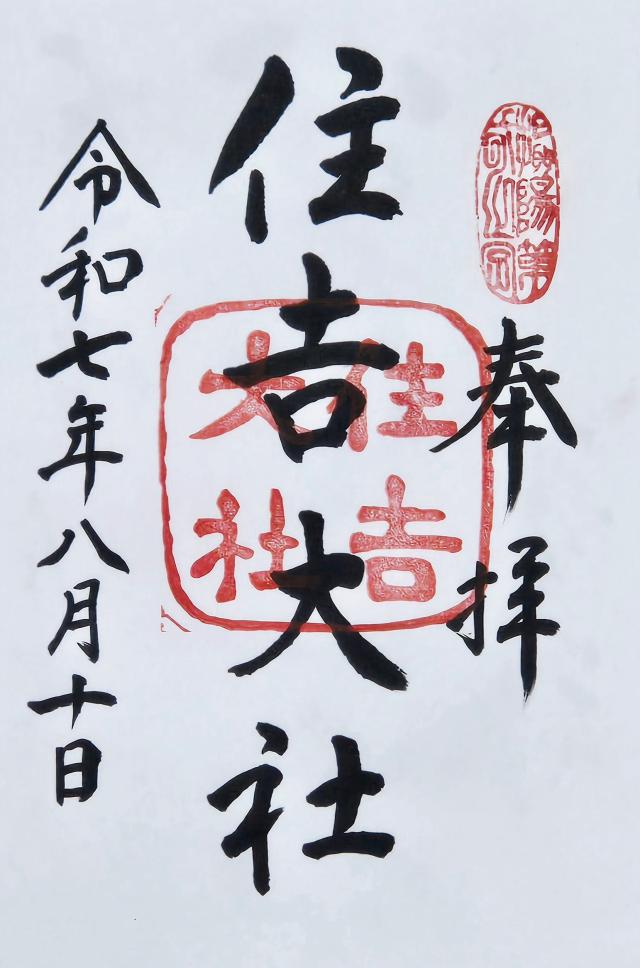 奉拝
住吉大社
住吉
大社
令和七年八月十日